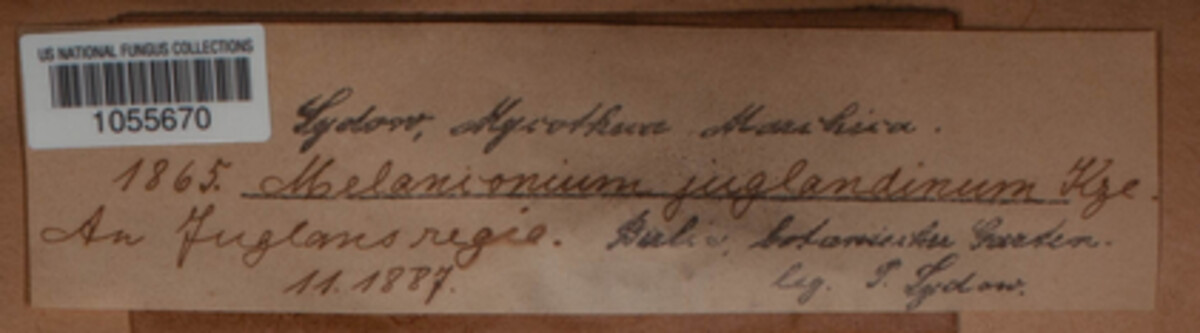 US NATIONAL FUNGUS COLLECTIONS
1055670
Sydow, Mycotheca Marchica.
1865. Melanconium juglandinum Kze.
An Juglans regia. Berlin, botanischer Garten.
11.1887. leg. P. Sydow.